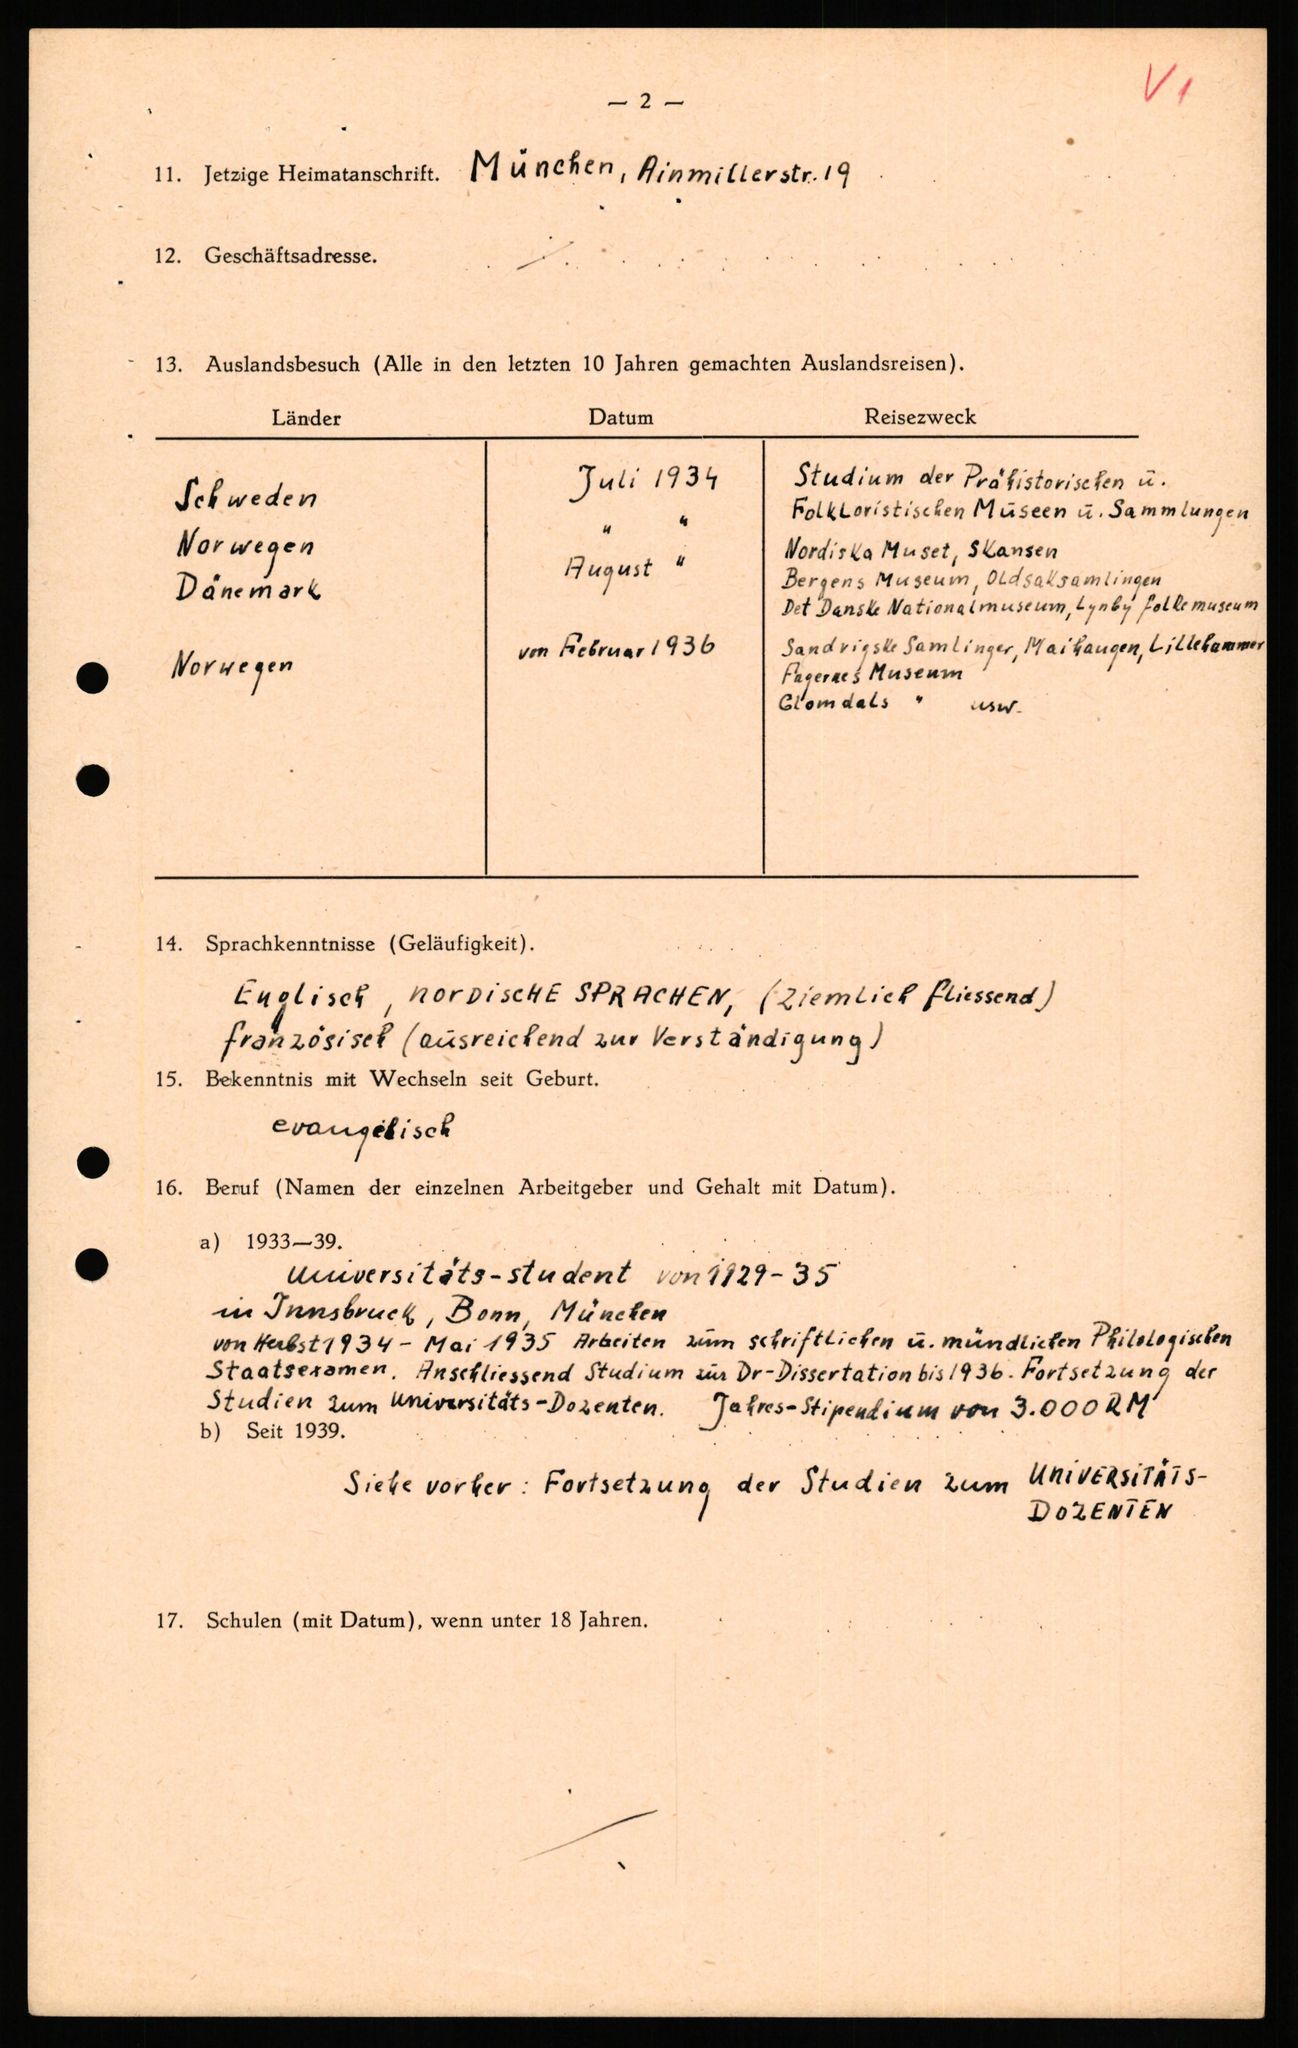 V 1
— 2 —
11. Jetzige Heimatanschrift. München, Ainmillerstr. 19
12. Geschäftsadresse.
13. Auslandsbesuch (Alle in den letzten 10 Jahren gemachten Auslandsreisen).
Länder Datum Reisezweck
Schweden Juli 1934 Studium der Prähistorischen u.
Folkloristischen Museen u. Sammlungen
Norwegen " " Nordiska Muset, Skansen
Dänemark August " Bergens Museum, Oldsaksamlingen
Det Danske Nationalmuseum, Lynby folkemuseum
Norwegen von Februar 1936 Sandvigske Samlinger, Maihaugen, Lillehammer
Fagernes Museum
Glomdals " usw.
14. Sprachkenntnisse (Geläufigkeit).
Englisch, nordische SPRACHEN, (ziemlich fliessend)
französisch (ausreichend zur Verständigung)
15. Bekenntnis mit Wechseln seit Geburt.
evangelisch
16. Beruf (Namen der einzelnen Arbeitgeber und Gehalt mit Datum).
a) 1933—39.
Universitäts-student von 1929-35
in Innsbruck, Bonn, München
von Herbst 1934 - Mai 1935 Arbeiten zum schriftlichen u. mündlichen Philologischen
Staatsexamen. Anschliessend Studium zur Dr-Dissertation bis 1936. Fortsetzung der
Studien zum Universitäts-Dozenten. Jahres-Stipendium von 3.000 RM
b) Seit 1939.
Siehe vorher: Fortsetzung der Studien zum UNIVERSITÄTS-
DOZENTEN
17. Schulen (mit Datum), wenn unter 18 Jahren.